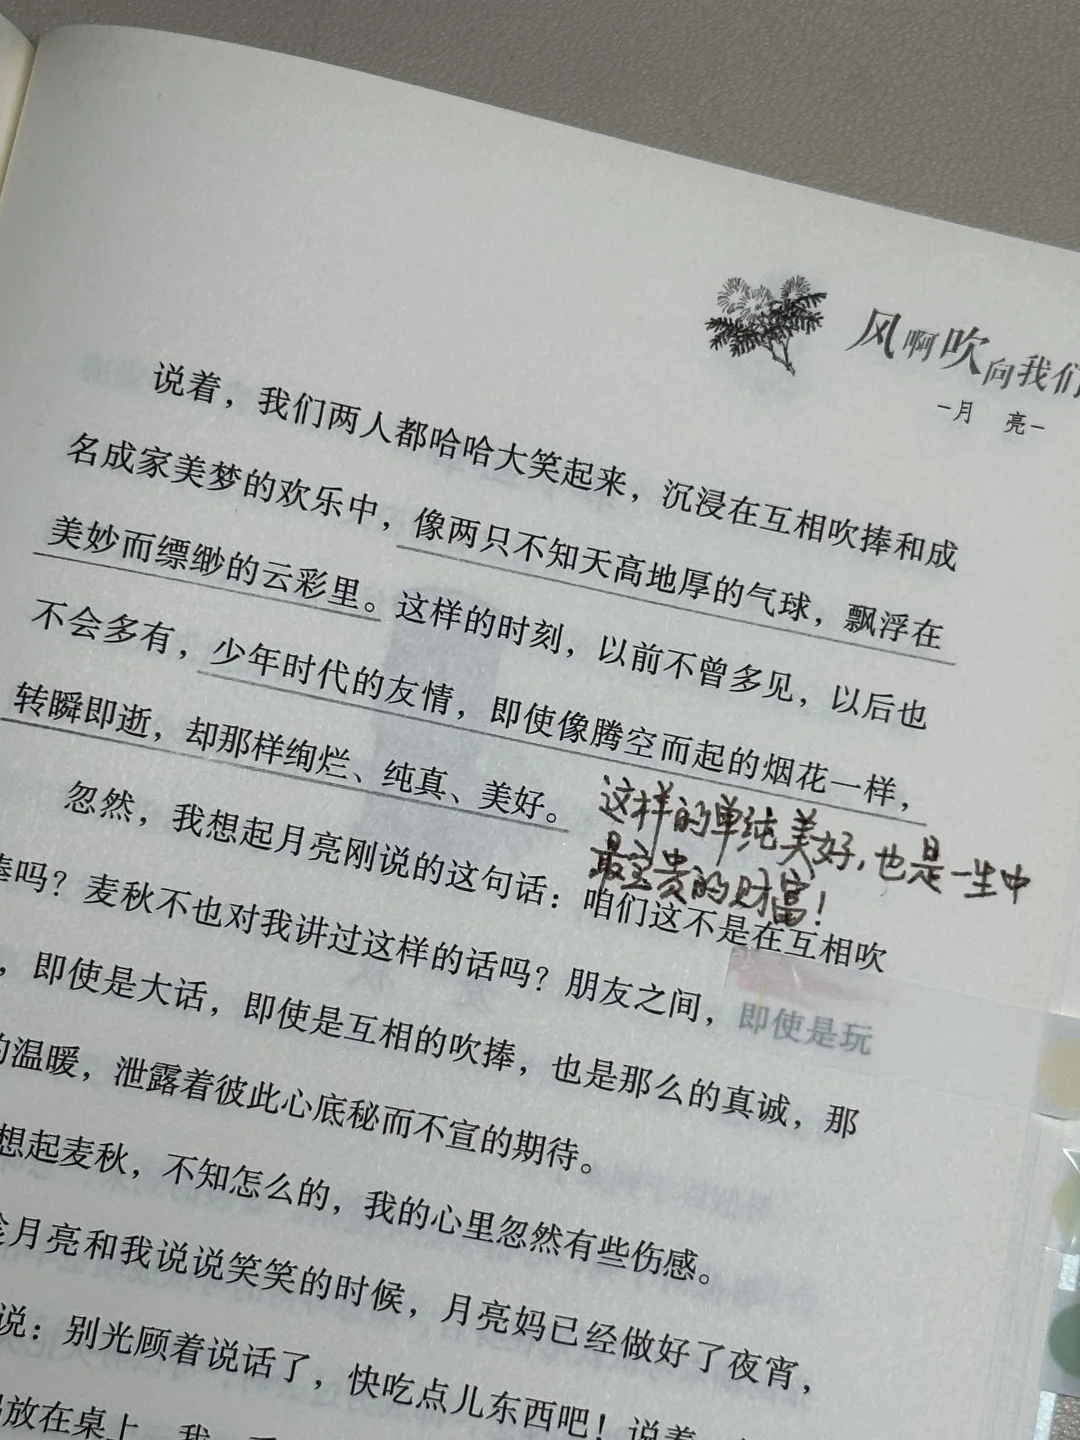 风啊吹向我们
-月 亮-
说着，我们两人都哈哈大笑起来，沉浸在互相吹捧和成
名成家美梦的欢乐中，像两只不知天高地厚的气球，飘浮在
美妙而缥缈的云彩里。这样的时刻，以前不曾多见，以后也
不会多有，少年时代的友情，即使像腾空而起的烟花一样，
转瞬即逝，却那样绚烂、纯真、美好。
这样的单纯美好，也是一生中
最宝贵的财富！
忽然，我想起月亮刚说的这句话：咱们这不是在互相吹
捧吗？麦秋不也对我讲过这样的话吗？朋友之间，即使是玩
，即使是大话，即使是互相的吹捧，也是那么的真诚，那
的温暖，泄露着彼此心底秘而不宣的期待。
想起麦秋，不知怎么的，我的心里忽然有些伤感。
月亮和我说说笑笑的时候，月亮妈已经做好了夜宵，
说：别光顾着说话了，快吃点儿东西吧！说着
放在桌上